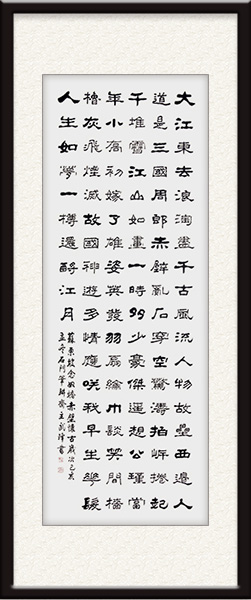 大江東去浪淘盡千古風流人物故壘西邊人
道是三國周郎赤壁亂石穿空驚濤拍岸捲起
千堆雪江山如畫一時多少豪傑遙想公瑾當
年小喬初嫁了雄姿英發羽扇綸巾談笑間檣
櫓灰飛煙滅故國神遊多情應笑我早生華髮
人生如夢一樽還酹江月
蘇東坡念奴嬌赤壁懷古歲次己亥
孟冬石門筆耕齋主武澤書